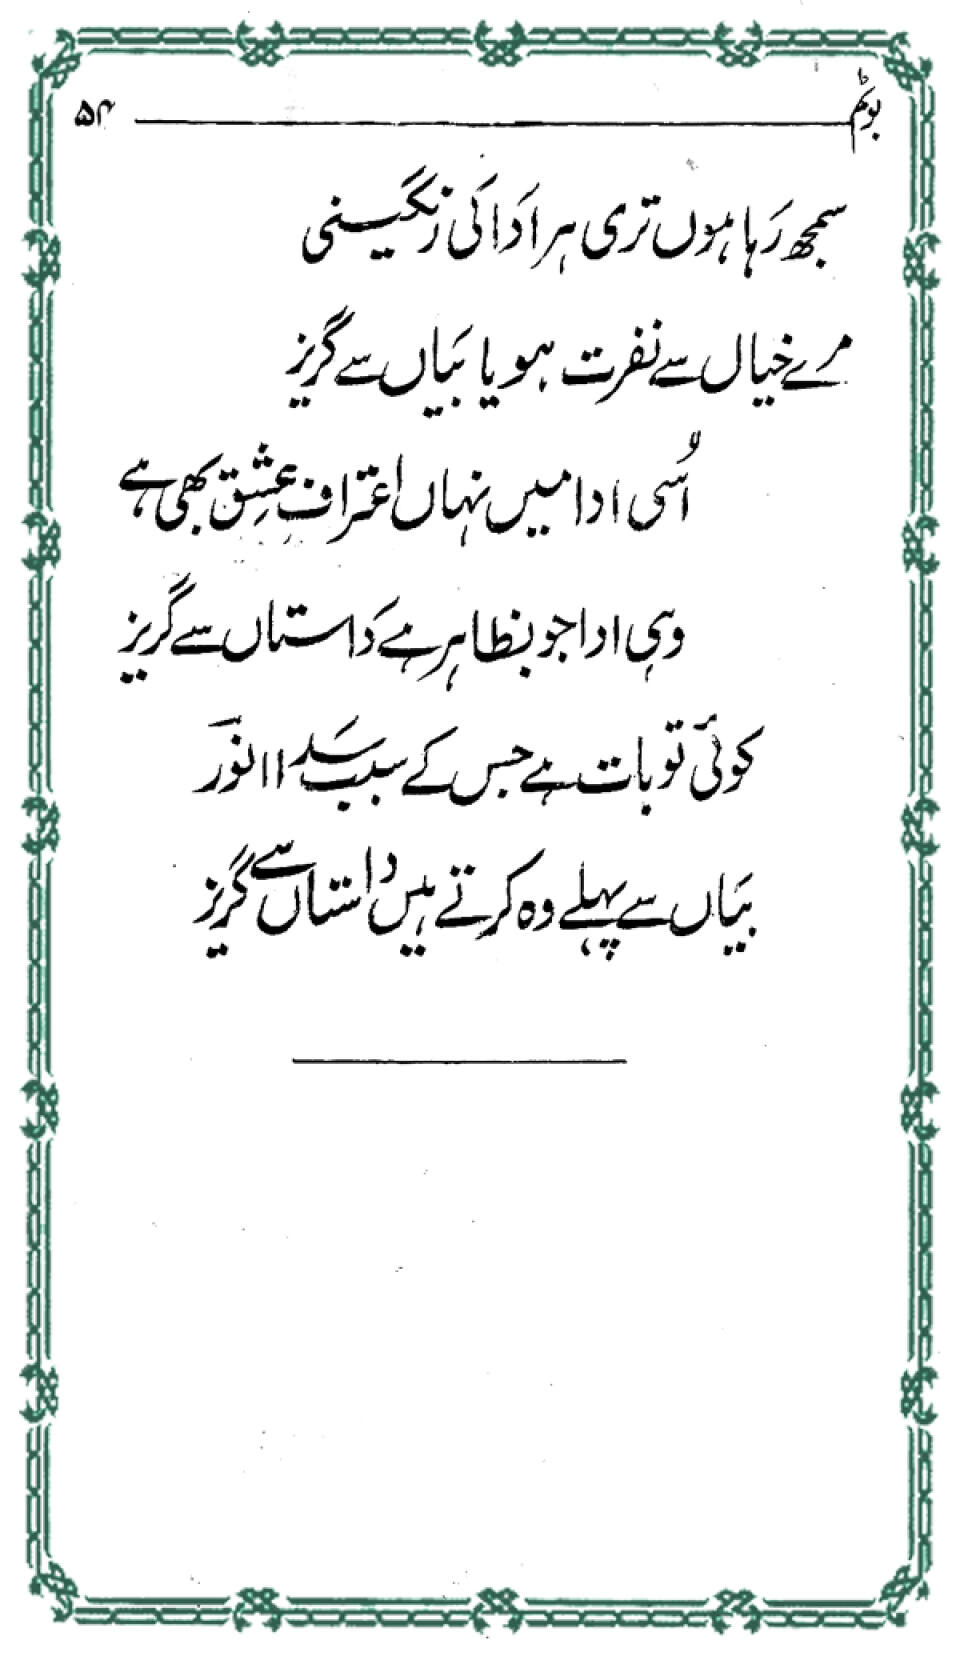 بوٹم ۵۴
سمجھ رہا ہوں تری ہر ادا کی رنگینی
مرے خیال سے نفرت ہو یا بیاں سے گریز
اُسی ادا میں نہاں اعترافِ عشق بھی ہے
وہی ادا جو بظاہر ہے داستاں سے گریز
کوئی تو بات ہے جس کے سبب سدا انور
بیاں سے پہلے وہ کرتے ہیں داستاں سے گریز